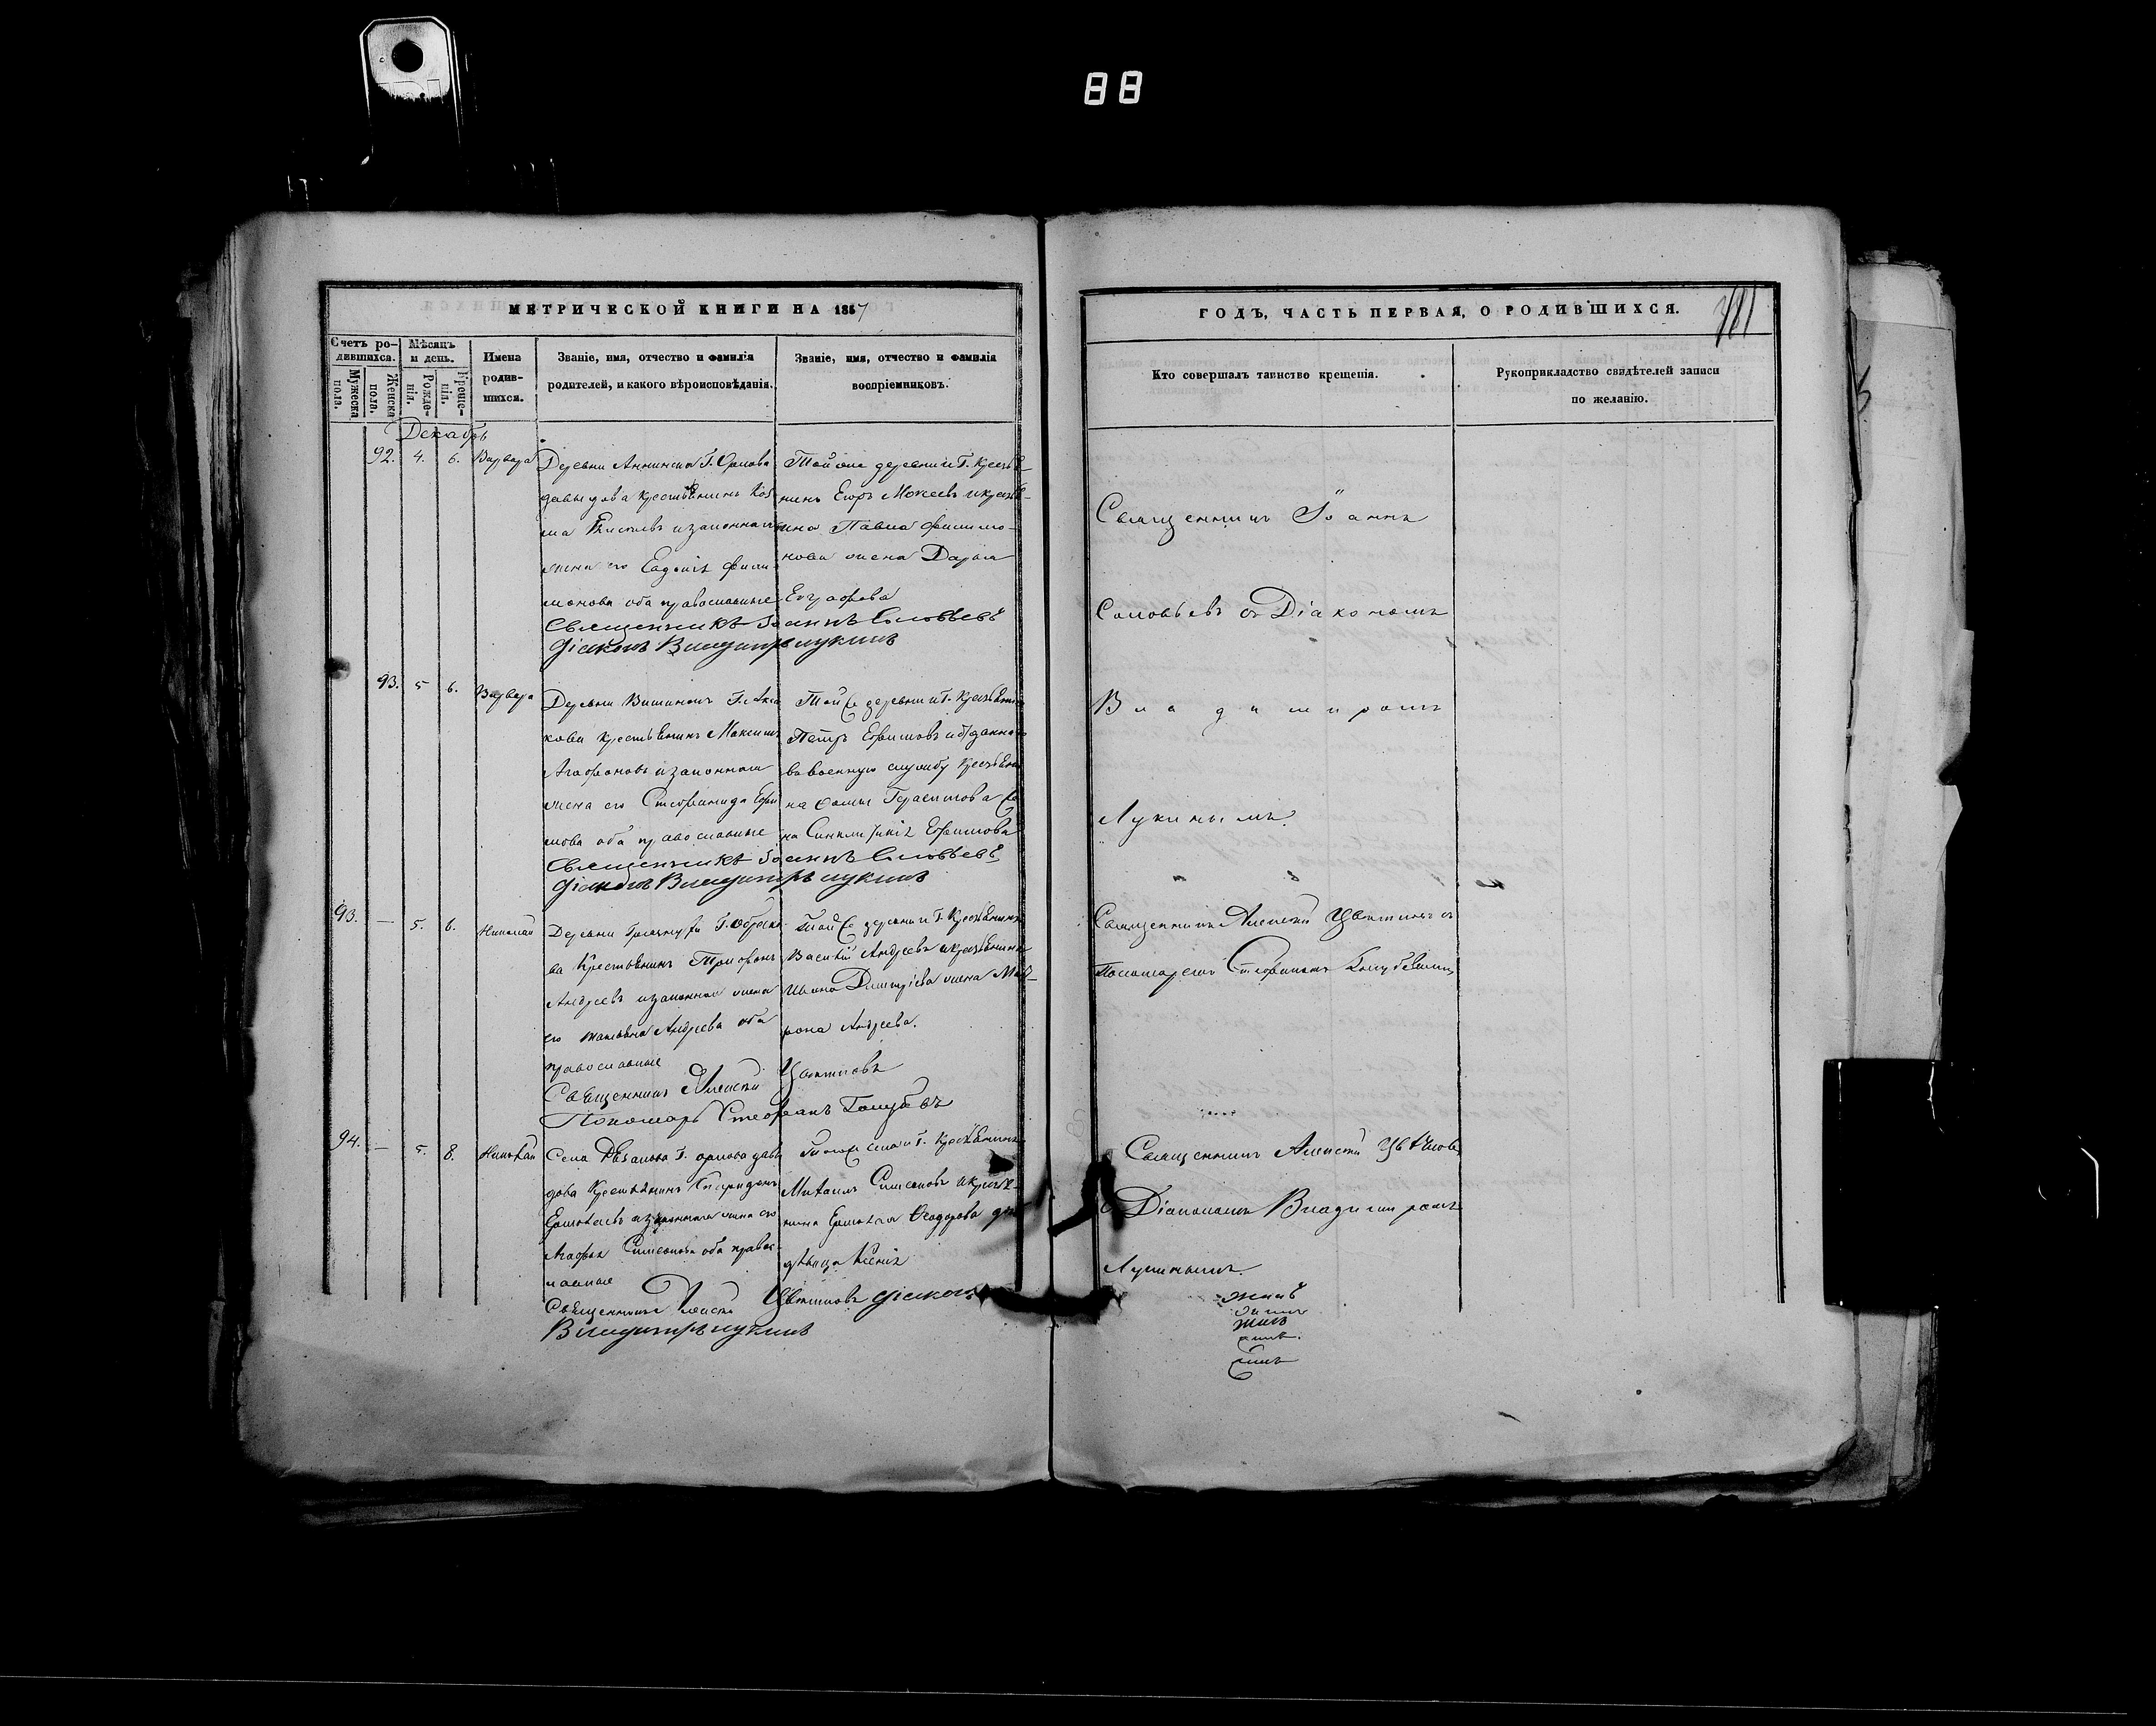 88
МЕТРИЧЕСКОЙ КНИГИ НА 1857
Счетъ ро-
дившихся.
Мужеска
пола.
Женска
пола.
Мѣсяцъ
и день.
Рожде-
нія.
Креще-
нія.
Имена
родив-
шихся.
Званіе, имя, отчество и фамилія
родителей, и какого вѣроисповѣданія.
Званіе, имя, отчество и фамилія
воспріемниковъ.
Декабрь
92. 4. 6. Варвара
Деревни Аннинской Г. Орлова
давыдова крестьянинъ Коз-
ма и законная
жена его Евдокія фили-
монова оба православные
Той же деревни и Г. крестья-
нинъ Егоръ Мокеевъ и крестья-
нина Павла филимо-
нова жена Дарья
Евграфова
Священникъ Іоаннъ Соловьевъ
Діаконъ Владимиръ Лукинъ
93. 5 6. Варвара
Деревни Г.
кова крестьянинъ Максимъ
Агафоновъ и законная
жена его Стефанида Ефи
мова оба православные
Той же деревни и Г. крестьянинъ
Петръ Ефимовъ и отданнаго
въ военную службу крестьяни
на Фомы Герасимова же
на Синклитикія Ефимова
Священникъ Іоаннъ Соловьевъ
Діаконъ Владимиръ Лукинъ
93. — 5. 6. Николай
Деревни Г. Обрезко
ва крестьянинъ Трифонъ
Андреевъ и законная жена
его Татьяна Андреева оба
православные
Той же деревни и Г. крестьянинъ
Василій Андреевъ и крестьянина
Ивана Димитріева жена Мат-
рона Андреева.
Священникъ Алексій Цвѣтковъ
Пономарь Стефанъ Голубевъ
94. — 5. 8. Николай
Села Рѣзанова Г. орлова давы
дова крестьянинъ Спиридонъ
Ермолаевъ и законная жена его
Агафья Симеонова оба правос-
лавные
Того же села и Г. крестьянинъ
Михаилъ Симеоновъ и крестья-
нина Ермолая Ѳеодорова дочь
дѣвица Ксенія
Священникъ Алексій Цвѣтковъ Діаконъ
Владимиръ Лукинъ
ГОДЪ, ЧАСТЬ ПЕРВАЯ, О РОДИВШИХСЯ.
381
Кто совершалъ таинство крещенія.
Рукоприкладство свидѣтелей записи
по желанію.
Священникъ Іоаннъ
Соловьевъ съ Діакономъ
Владимиромъ
Лукинымъ.
Священникъ Алексій Цвѣтковъ съ
Пономаремъ Стефаномъ Голубевымъ
Священникъ Алексій Цвѣтковъ
съ Діакономъ Владимиромъ
Лукинымъ.